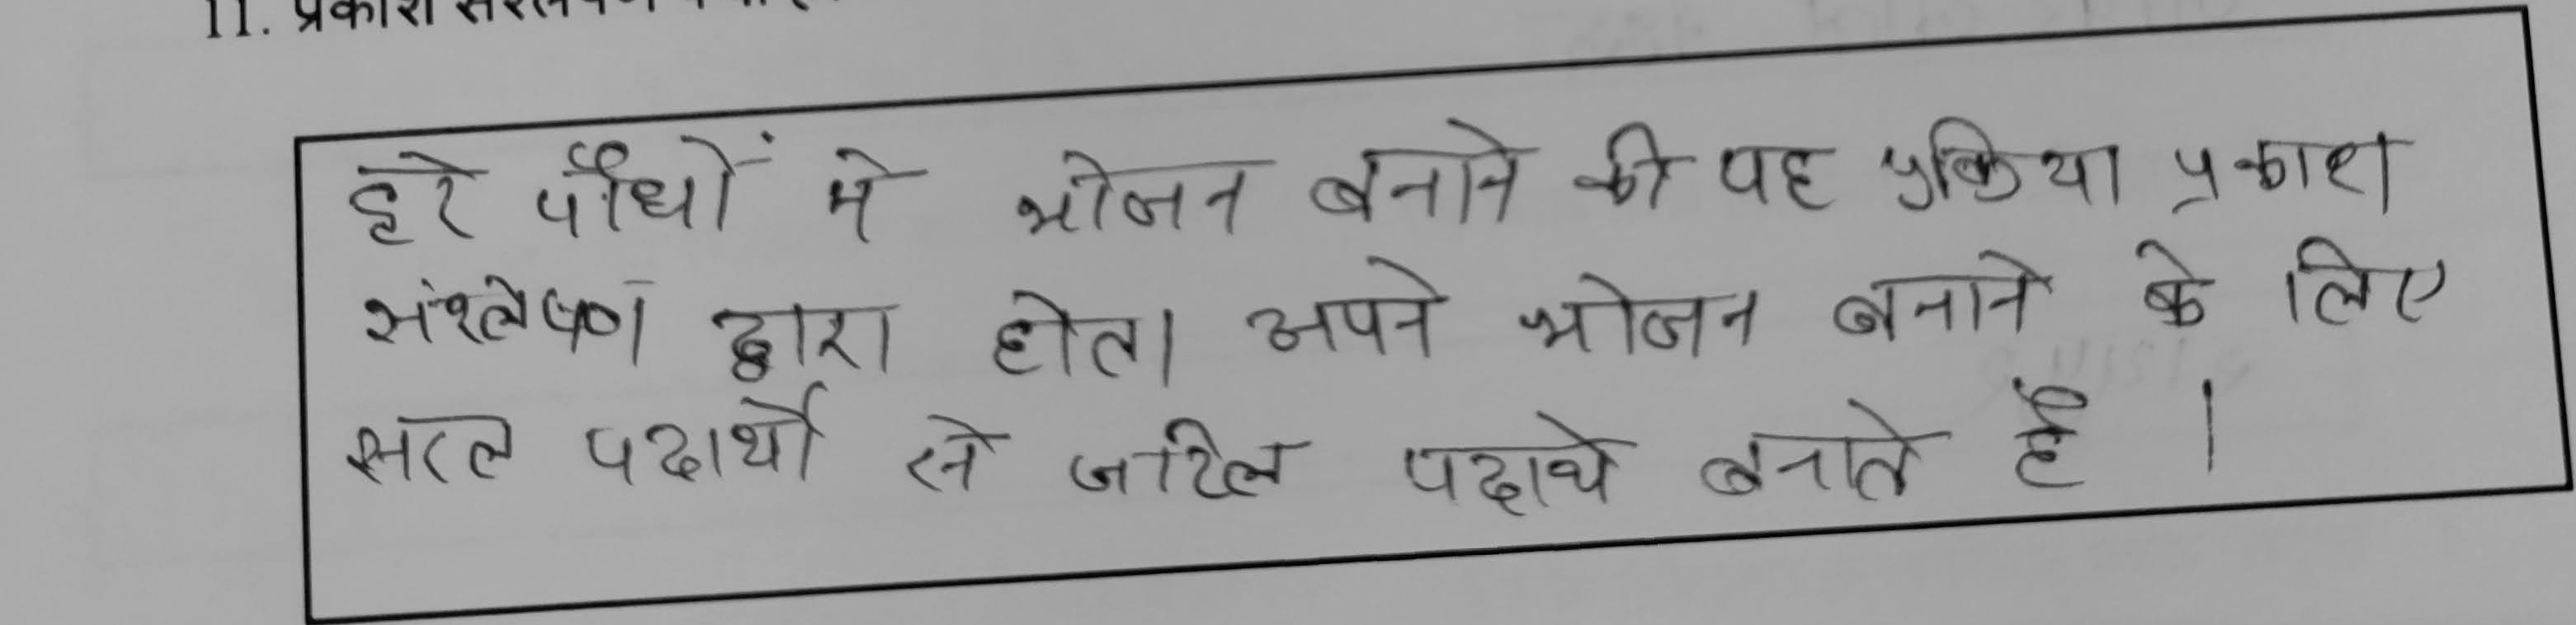 11. प्रकाश संश्लेषण
हरे पौधों मे भोजन बनाने की यह प्रक्रिया प्रकाश
संश्लेषण द्वारा होता अपने भोजन बनाने के लिए
सरल पदार्थो से जटिल पदार्थ बनाते है ।